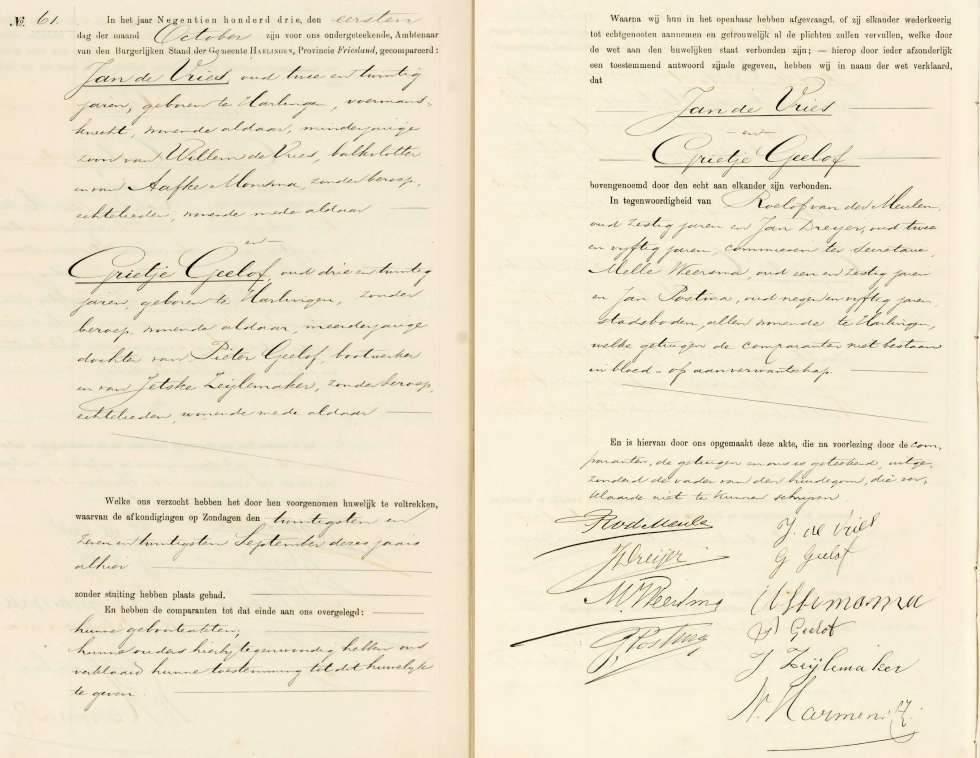 №. 61.
In het jaar Negentien honderd drie, den eersten
dag der maand October zijn voor ons ondergeteekende, Ambtenaar
van den Burgerlijken Stand der Gemeente HARLINGEN, Provincie Friesland, gecompareerd:
Jan de Vries, oud twee en twintig
jaren, geboren te Harlingen, voermans-
knecht, wonende aldaar, minderjarige
zoon van Willem de Vries, balkvlotter
en van Aafke Monsma, zonder beroep,
echtelieden, wonende mede aldaar
en
Grietje Geelof, oud drie en twintig
jaren, geboren te Harlingen, zonder
beroep, wonende aldaar, meerderjarige
dochter van Pieter Geelof, bootwerker
en van Jetske Zeijlemaker, zonder beroep,
echtelieden, wonende mede aldaar
Welke ons verzocht hebben het door hen voorgenomen huwelijk te voltrekken,
waarvan de afkondigingen op Zondagen den twintigsten en
zeven en twintigsten September dezes jaars
alhier
zonder stuiting hebben plaats gehad.
En hebben de comparanten tot dat einde aan ons overgelegd:
hunne geboorteakten;
hunne ouders hierbij tegenwoordig hebben ons
verklaard hunne toestemming tot dit huwelijk
te geven.
Waarna wij hun in het openbaar hebben afgevraagd, of zij elkander wederkeerig
tot echtgenooten aannemen en getrouwelijk al de plichten zullen vervullen, welke door
de wet aan den huwelijken staat verbonden zijn; — hierop door ieder afzonderlijk
een toestemmend antwoord zijnde gegeven, hebben wij in naam der wet verklaard,
dat
Jan de Vries
en
Grietje Geelof
bovengenoemd door den echt aan elkander zijn verbonden.
In tegenwoordigheid van Roelof van der Meulen,
oud zestig jaren en Jan Dreijer, oud twee
en vijftig jaren, commiezen ter Secretarie,
Melle Weersma, oud een en zestig jaren
en Jan Postma, oud negen en vijftig jaren,
stadsboden, allen wonende te Harlingen,
welke getuigen de comparanten niet bestaan
in bloed- of aanverwantschap
En is hiervan door ons opgemaakt deze akte, die na voorlezing door de com-
paranten, de getuigen en ons is geteekend, uitge-
zonderd de vader van den bruidegom, die ver-
klaarde niet te kunnen schrijven
RvdMeulen
J. de Vries
JDreijer
G Geelof
MWeersma
P Geelof
JPostma
J Zeijlemaker